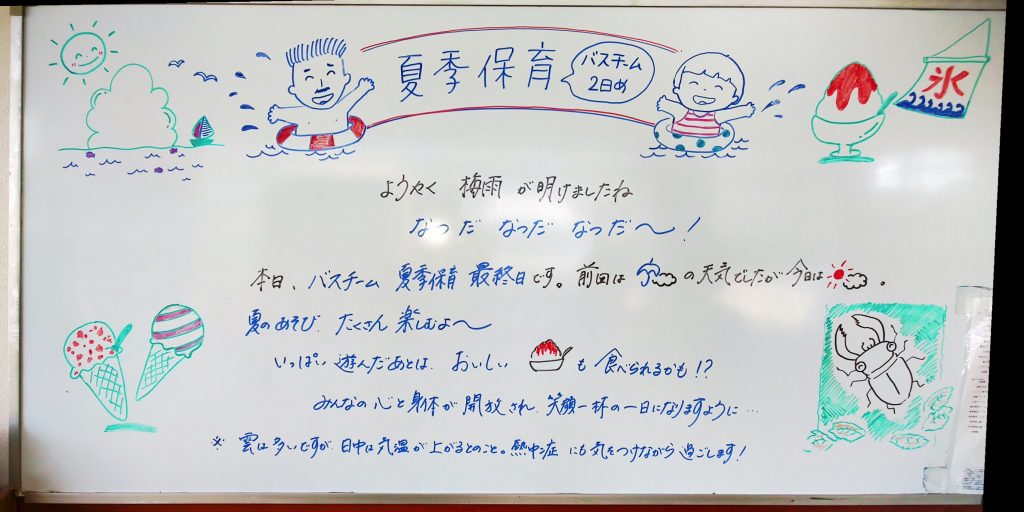 夏季保育
バスチーム
2日め
氷
ようやく 梅雨 が明けましたね
なつだ なつだ なつだ〜!
本日、バスチーム 夏季保育 最終日です。前回は の天気でしたが今日は 。
夏のあそび たくさん 楽しむよ〜
いっぱい 遊んだあとは おいしい も 食べられるかも!?
みんなの心と身体が開放され 笑顔一杯の一日になりますように…
※ 雲は多いですが 日中は気温が上がるとのこと。熱中症にも気をつけながら過ごします!